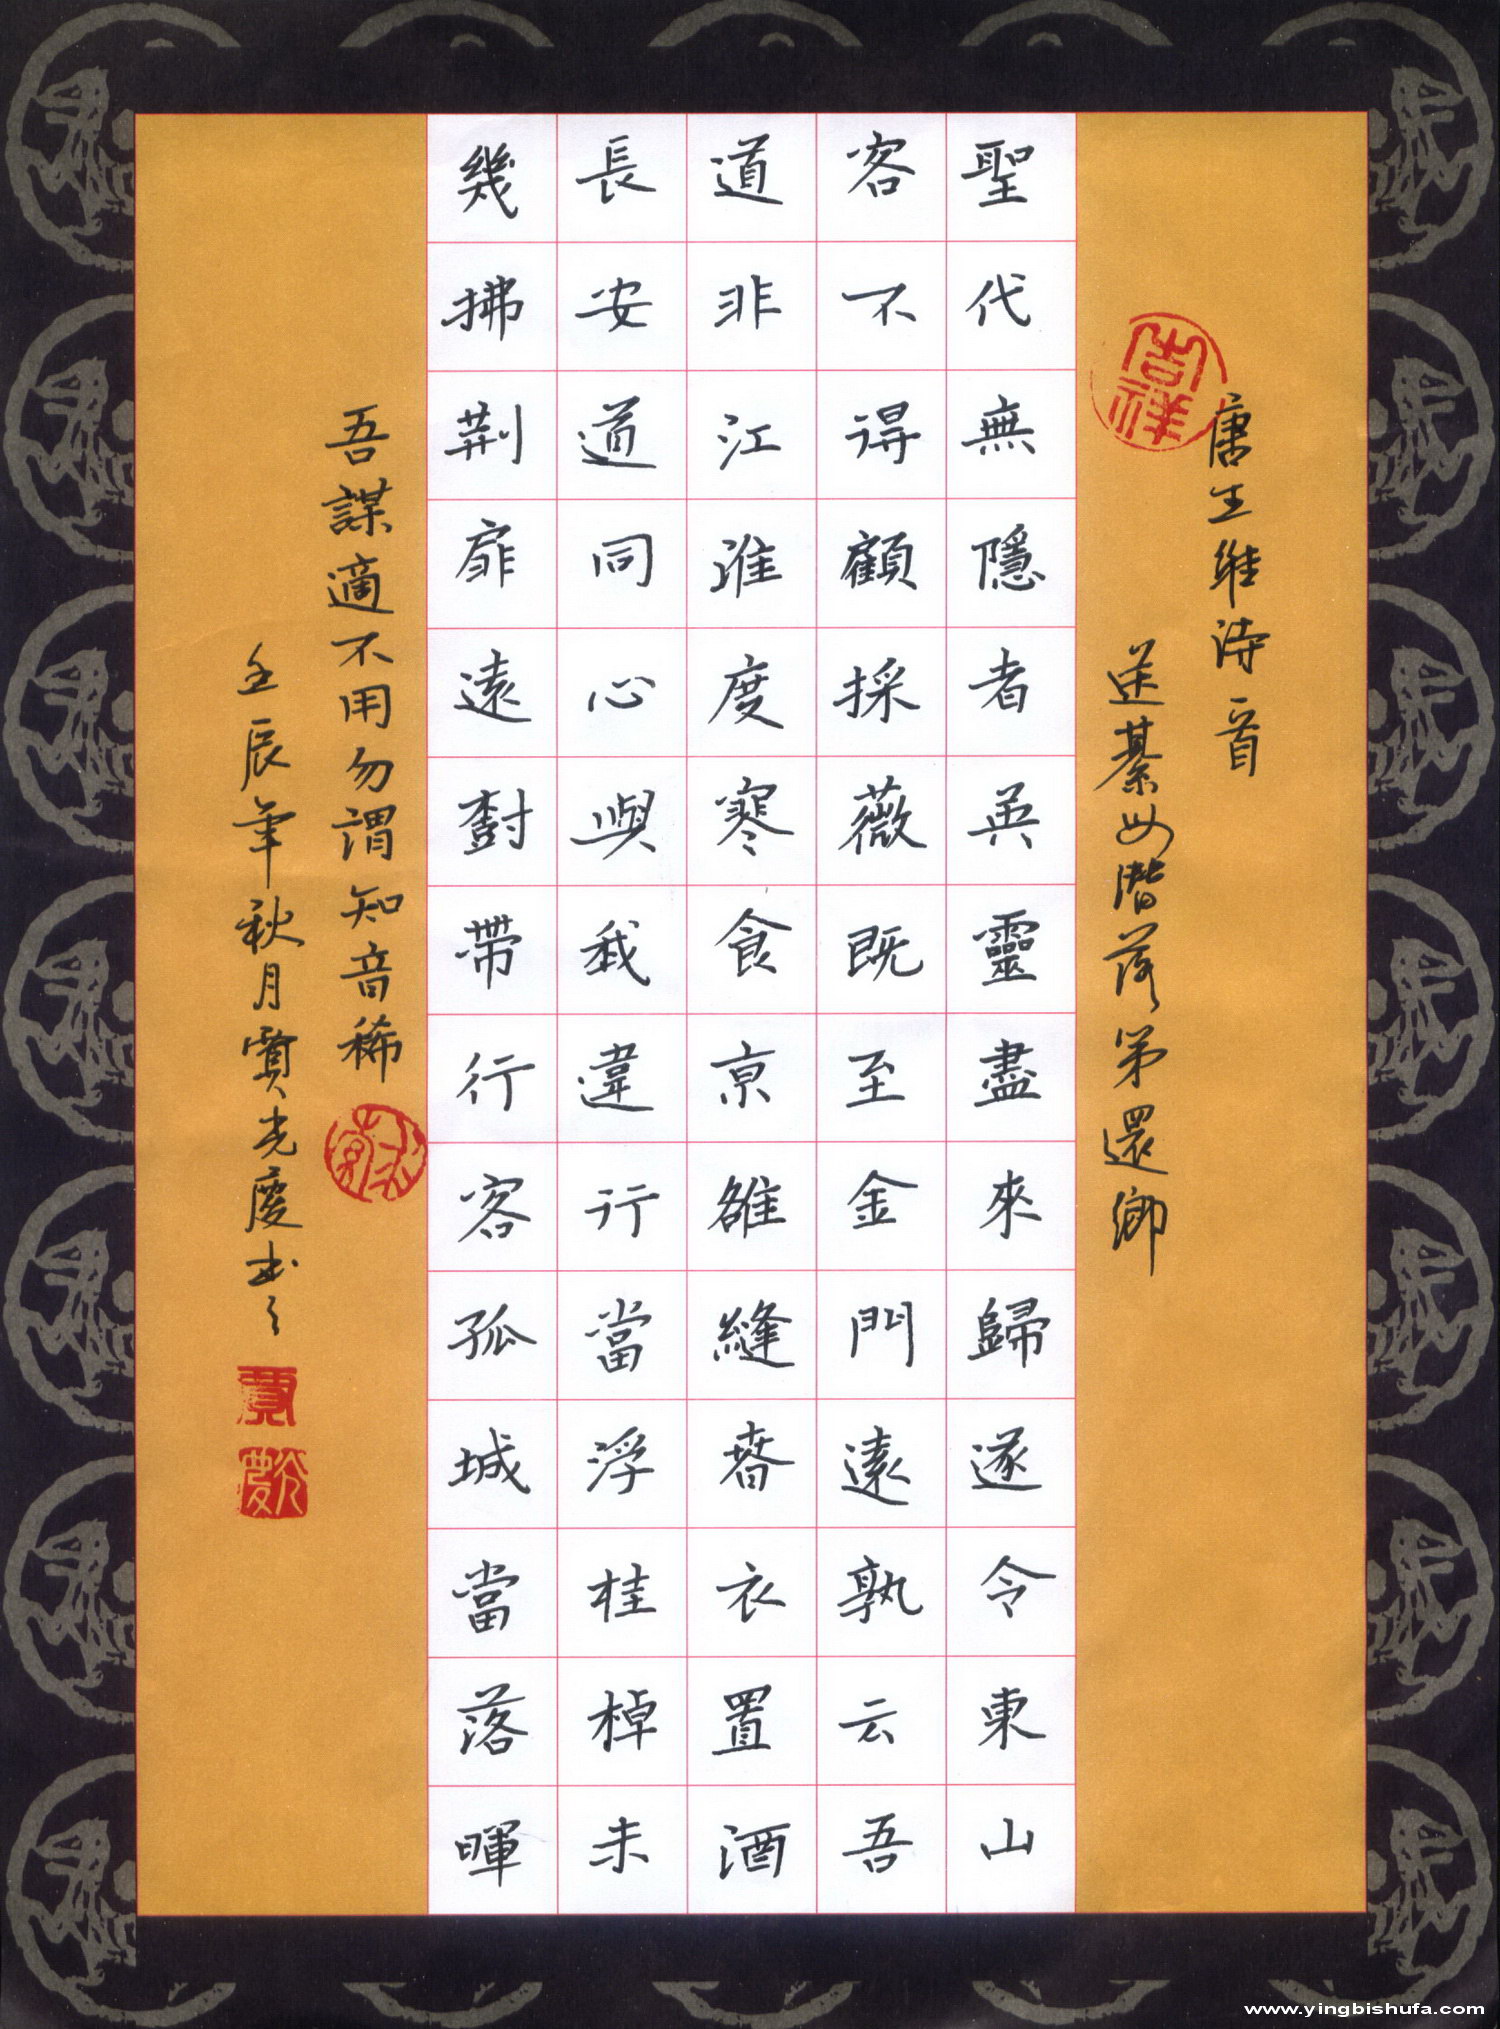 唐王維詩一首
吉祥
送綦毋潛落第還鄉
聖代無隱者英靈盡來歸遂令東山
客不得顧採薇既至金門遠孰云吾
道非江淮度寒食京雒縫春衣置酒
長安道同心與我違行當浮桂棹未
幾拂荊扉遠樹帶行客孤城當落暉
吾謀適不用勿謂知音稀
壬辰年秋月賈光慶书之
www.yingbishufa.com